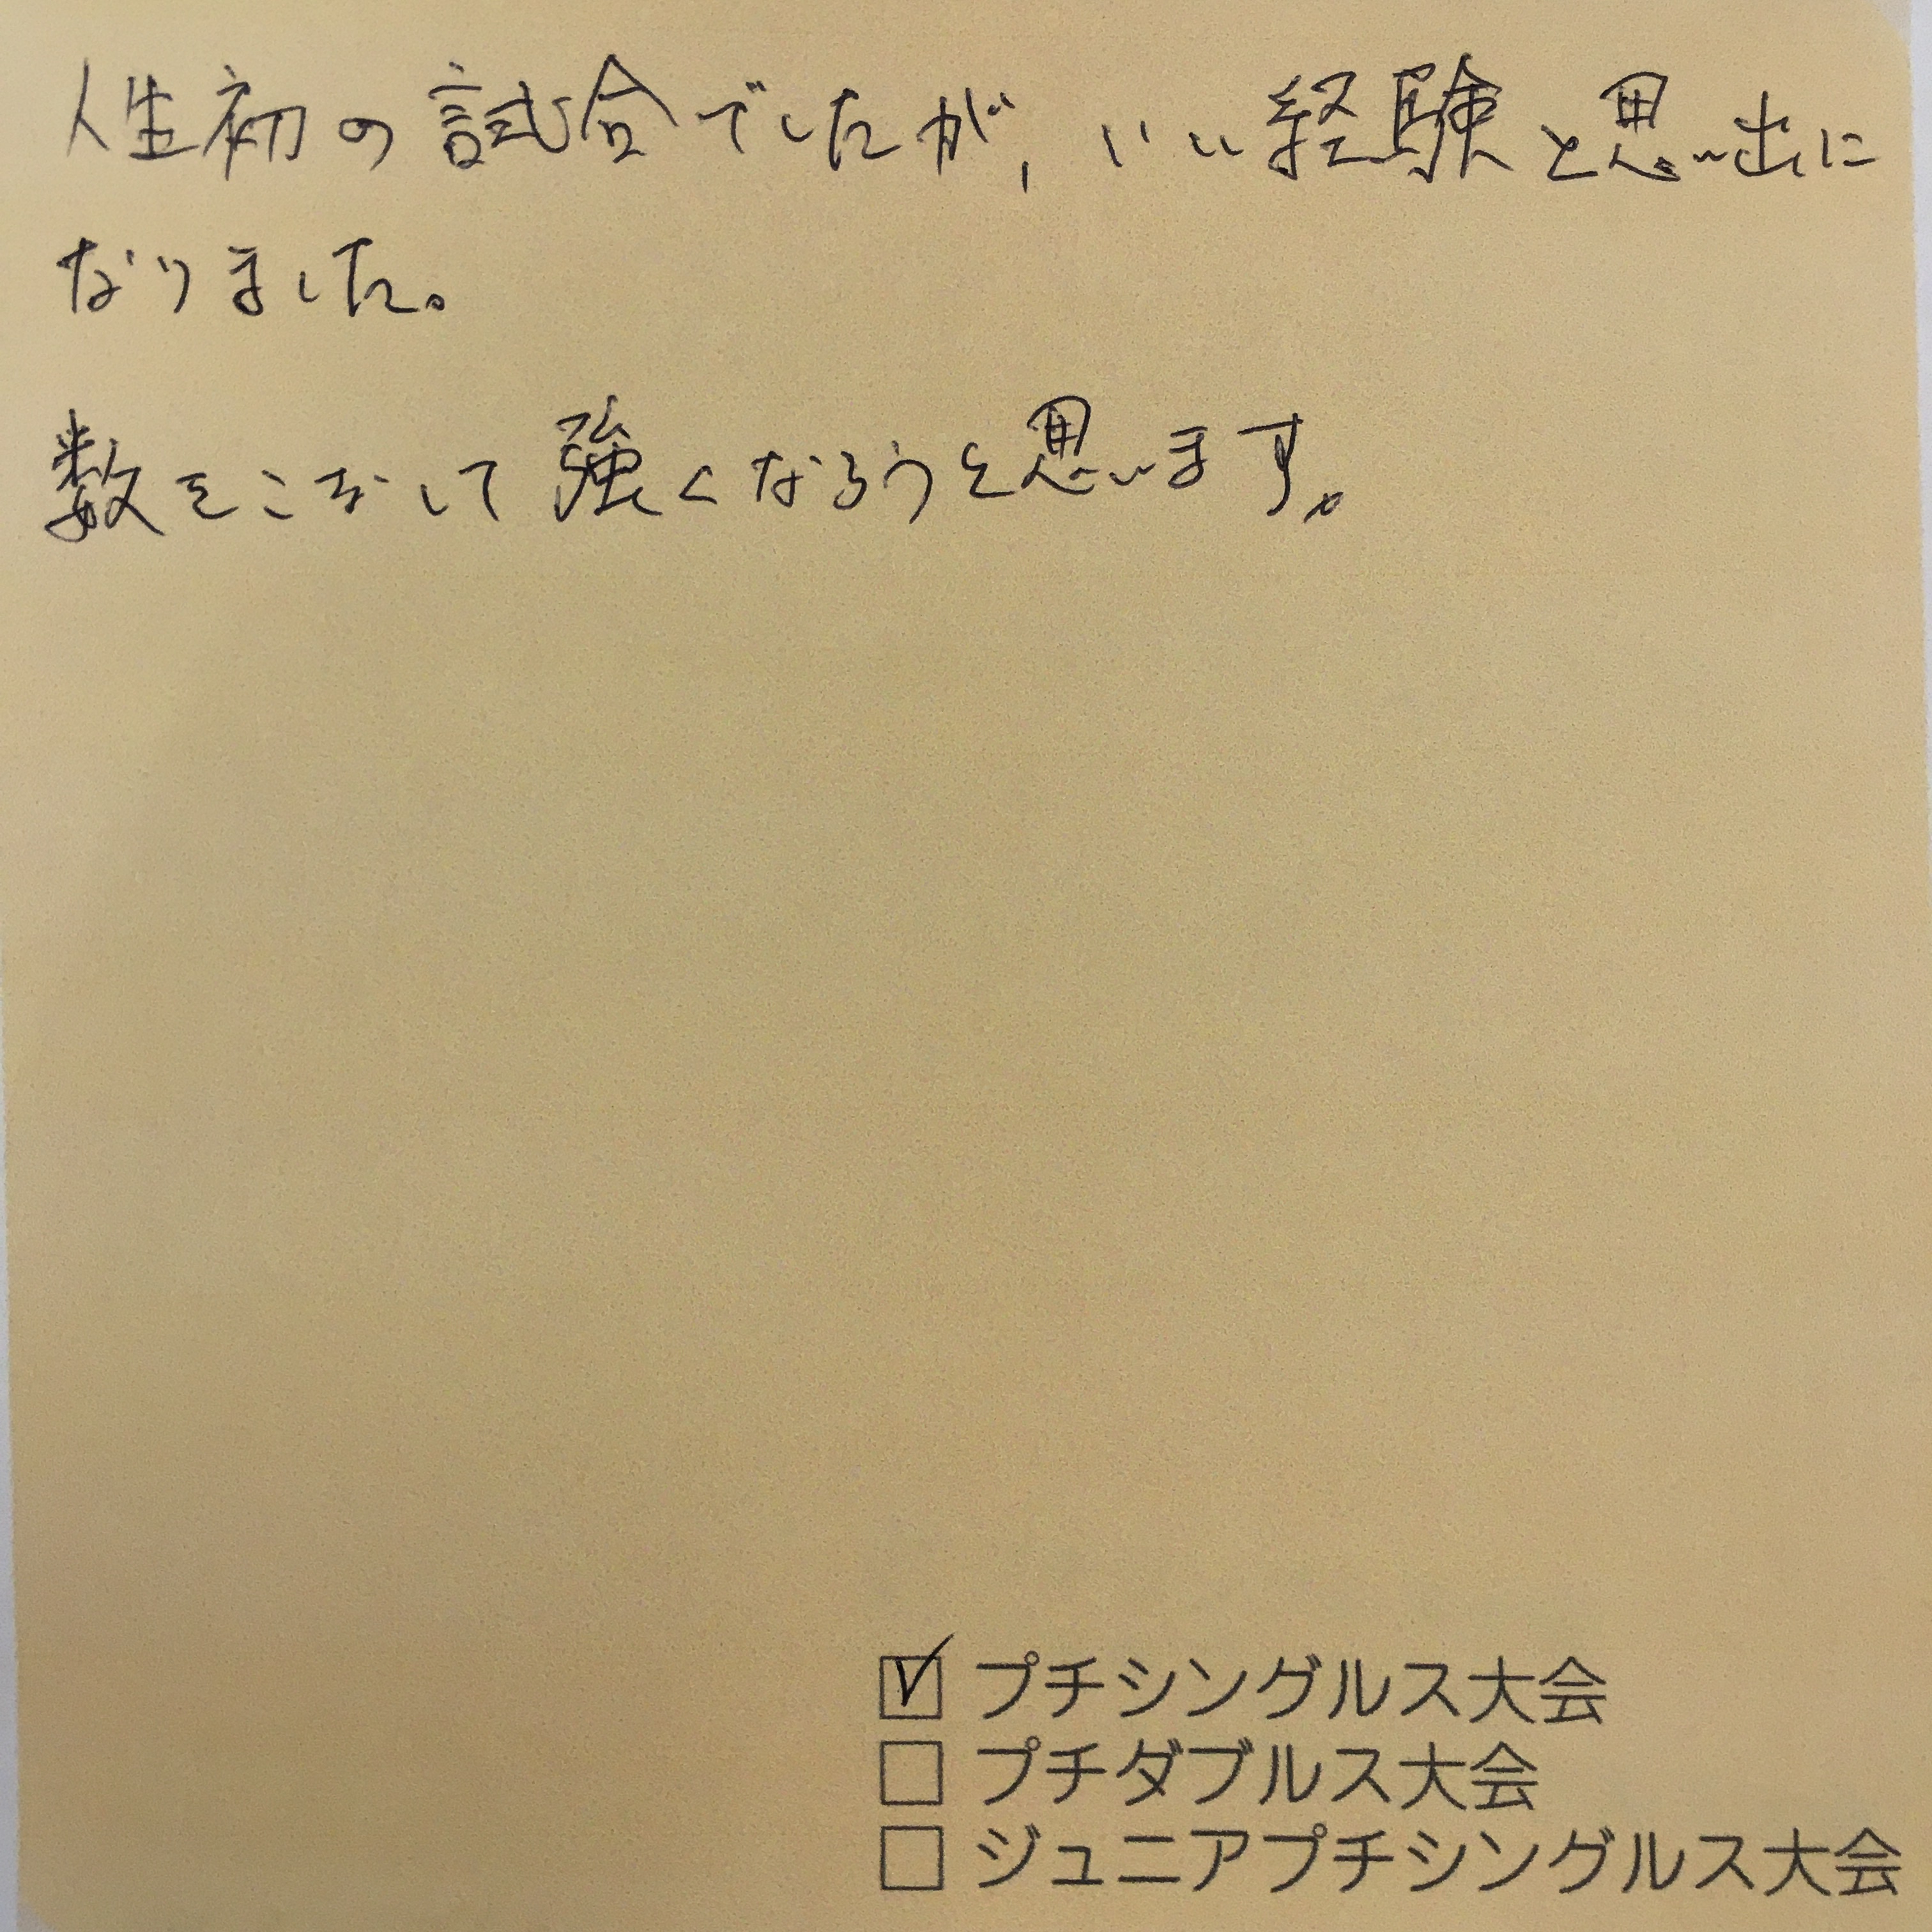 人生初の試合でしたが、いい経験と思い出に
なりました。
数をこなして強くなろうと思います。
☑ プチシングルス大会
□ プチダブルス大会
□ ジュニアプチシングルス大会